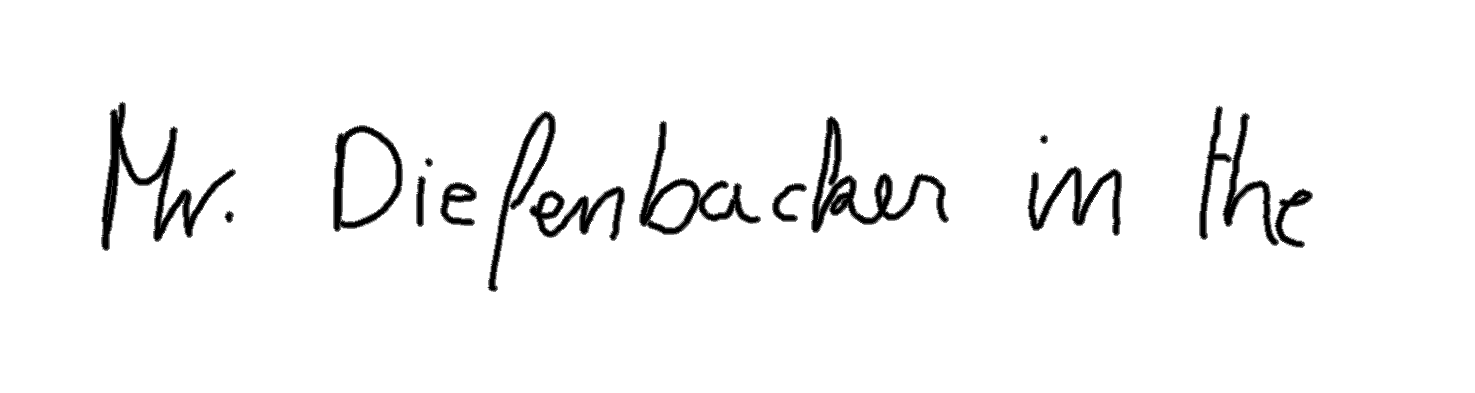 Mr. Diefenbacker in the